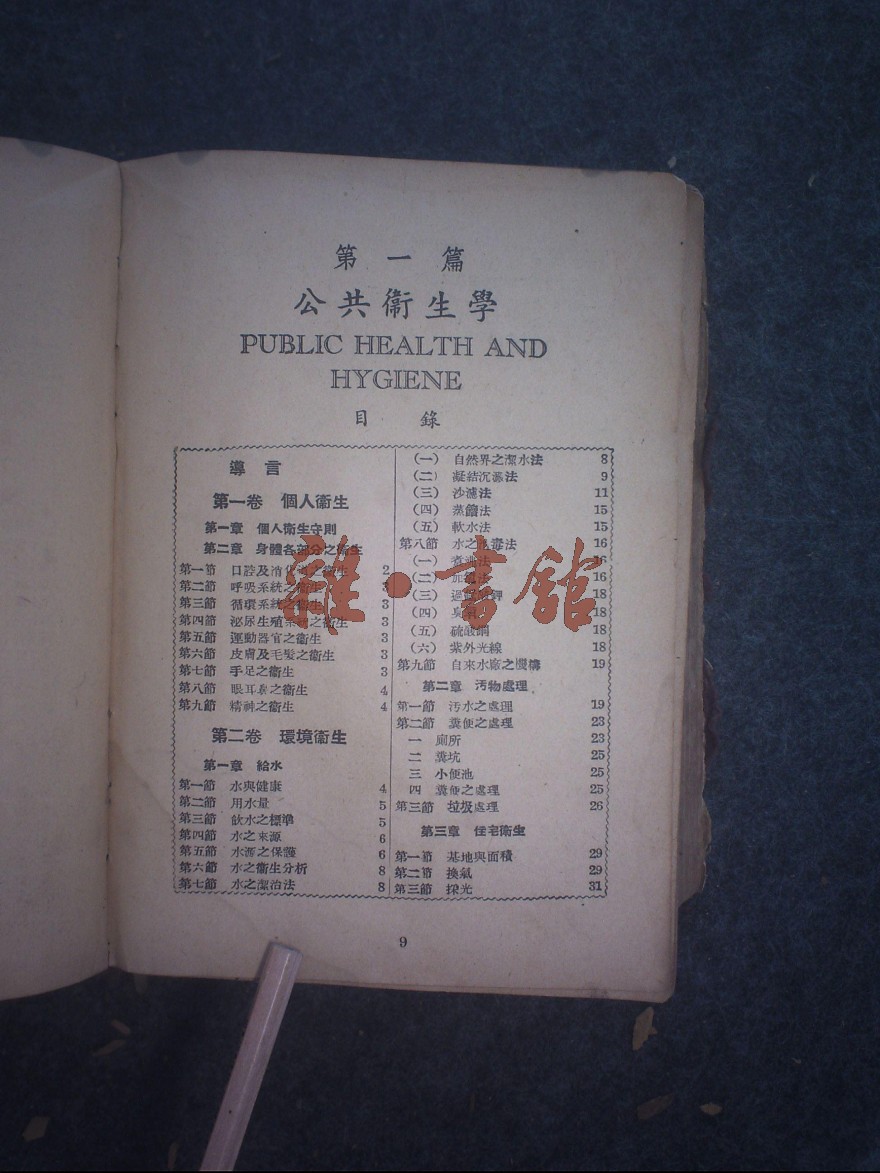 第一篇
公共衞生學
PUBLIC HEALTH AND
HYGIENE
目 錄
導言
第一卷 個人衞生
第一章 個人衞生守則
第二章 身體各部分之衞生
第一節 口腔及消化道之衞生 2
第二節 呼吸系統之衞生 3
第三節 循環系統之衞生 3
第四節 泌尿生殖系統之衞生 3
第五節 運動器官之衞生 3
第六節 皮膚及毛髮之衞生 3
第七節 手足之衞生 3
第八節 眼耳鼻之衞生 4
第九節 精神之衞生 4
第二卷 環境衞生
第一章 給水
第一節 水與健康 4
第二節 用水量 5
第三節 飲水之標準 5
第四節 水之來源 6
第五節 水源之保護 6
第六節 水之衞生分析 8
第七節 水之潔治法 8
(一) 自然界之潔水法 8
(二) 凝結沉澱法 9
(三) 沙濾法 11
(四) 蒸餾法 15
(五) 軟水法 15
第八節 水之消毒法 16
(一) 煮沸法 16
(二) 法 16
(三) 18
(四) 臭 18
(五) 硫酸銅 18
(六) 紫外光線 18
第九節 自來水廠之機構 19
第二章 污物處理
第一節 污水之處理 19
第二節 糞便之處理 23
一 廁所 23
二 糞坑 25
三 小便池 25
四 糞便之處理 25
第三節 垃圾處理 26
第三章 住宅衞生
第一節 基地與面積 29
第二節 換氣 29
第三節 採光 31
9
雜·書館